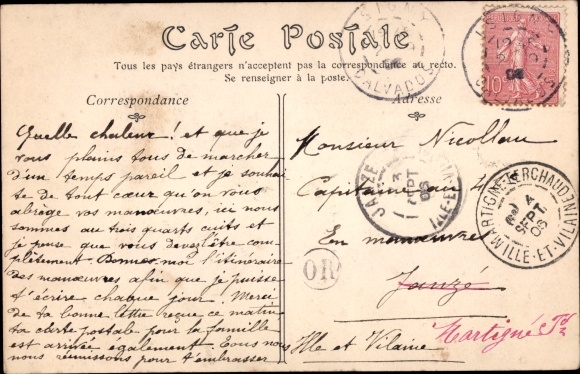 Carte Postale
Tous les pays étrangers n'acceptent pas la correspondance au recto.
Se renseigner à la poste.
Correspondance
Adresse
Quelle chaleur ! et que je
vous plains tous de marcher
d'un temps pareil et je souhai
te de tout cœur qu'on vous
abrège vos manœuvres, ici nous
sommes au trois quarts cuits et
je pense que vous devez l'être com
plètement. Donnes-moi l'itinéraire
des manœuvres afin que je puisse
t'écrire chaque jour. Merci
de ta bonne lettre reçue ce matin
ta carte postale pour la famille
est arrivée également. Tous nous
nous réunissons pour t'embrasser
Monsieur Nicollau
Capitaine au 4
En manœuvres
Janzé
Martigné
Ille et Vilaine
OR
CALVADOS
JANZÉ
SEPT
06
ILLE-ET-
MARTIGNÉ-FERCHAUD
4
SEPT
06
ILLE-ET-VILAINE
10